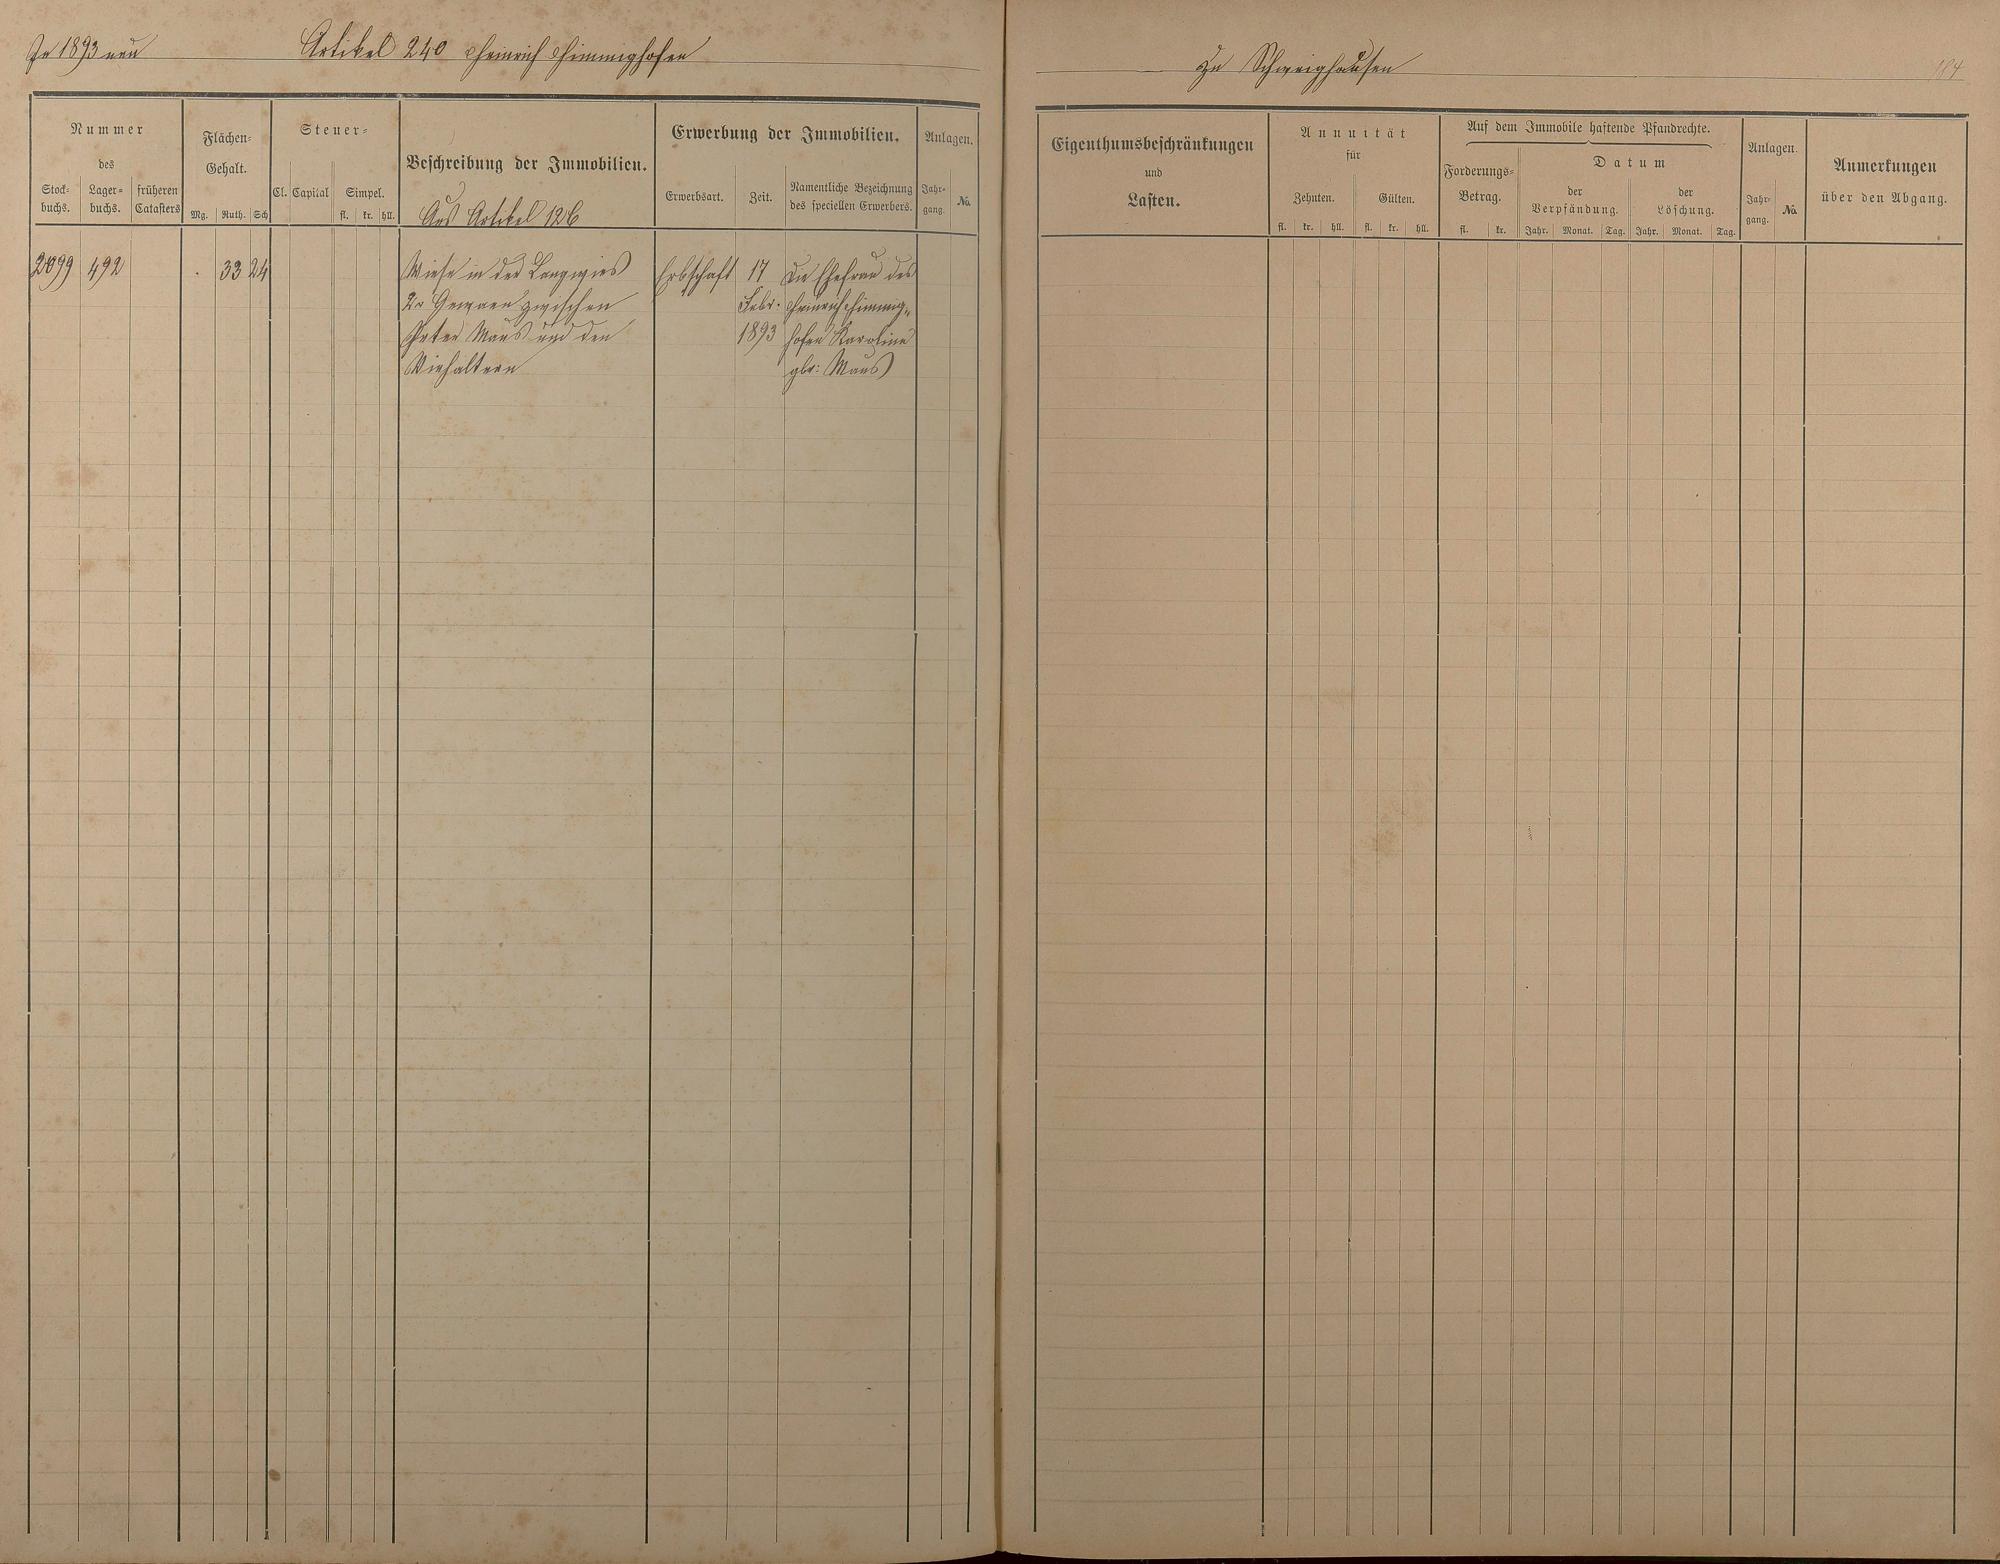 Zu 1893 neu Artikel 240 Heinrich Himmighofen
Nummer
des
Stock-
buchs.
Lager-
buchs.
früheren
Catasters
Flächen-
Gehalt.
Mg. Ruth. Sch
Steuer-
Cl. Capital Simpel.
fl. kr. hll.
Beschreibung der Immobilien.
Aus Artikel 126
Erwerbung der Immobilien.
Erwerbsart. Zeit.
Namentliche Bezeichnung
des speciellen Erwerbers.
Anlagen.
Jahr-
gang.
No.
2099 492 33 24 Wiese in der Langwies Erbschaft 17 Die Ehefrau des
2r Gewann zwischen Febr. Heinrich Himmig-
Peter Maus und den 1893 hofen Karoline
Viehaltern gbr: Maus
zu Schweighausen
184
Eigenthumsbeschränkungen
und
Lasten.
Annuität
für
Zehnten. Gülten.
fl. kr. hll. fl. kr. hll.
Auf dem Immobile haftende Pfandrechte.
Forderungs-
Betrag.
fl. kr.
Datum
der
Verpfändung.
Jahr. Monat. Tag.
der
Löschung.
Jahr. Monat. Tag.
Anlagen.
Jahr-
gang.
No.
Anmerkungen
über den Abgang.